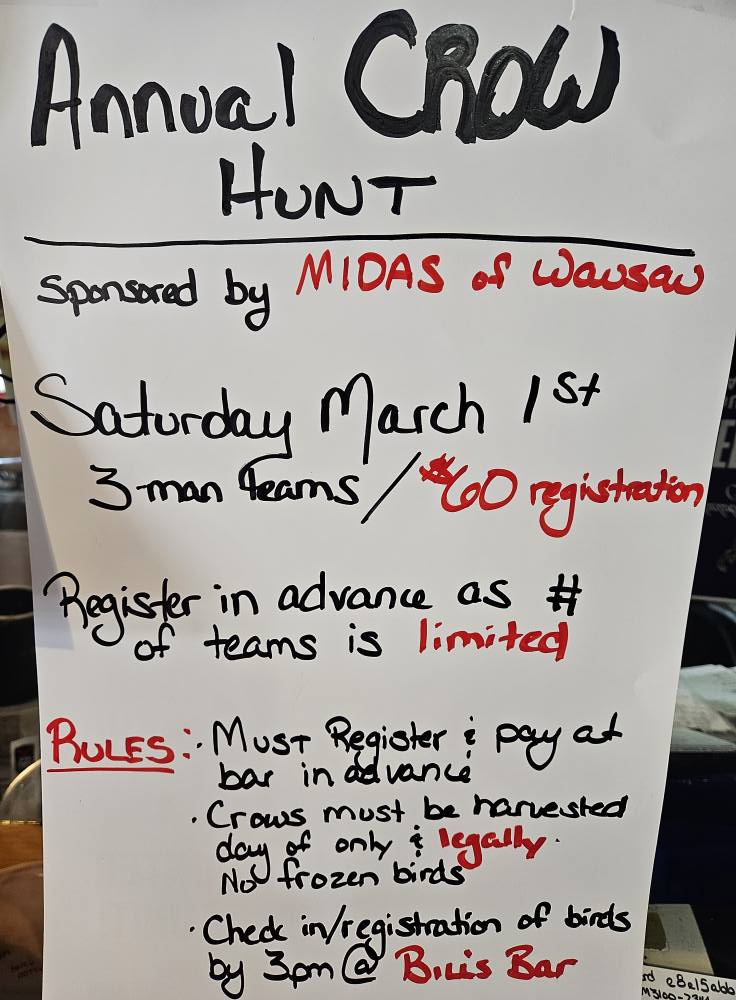 Annual CROW
HUNT
Sponsored by MIDAS of Wausau
Saturday March 1st
3-man teams / $60 registration
Register in advance as #
of teams is limited
RULES: · Must Register & pay at
bar in advance
· Crows must be harvested
day of only & legally.
No frozen birds
· Check in/registration of birds
by 3pm @ Bill's Bar